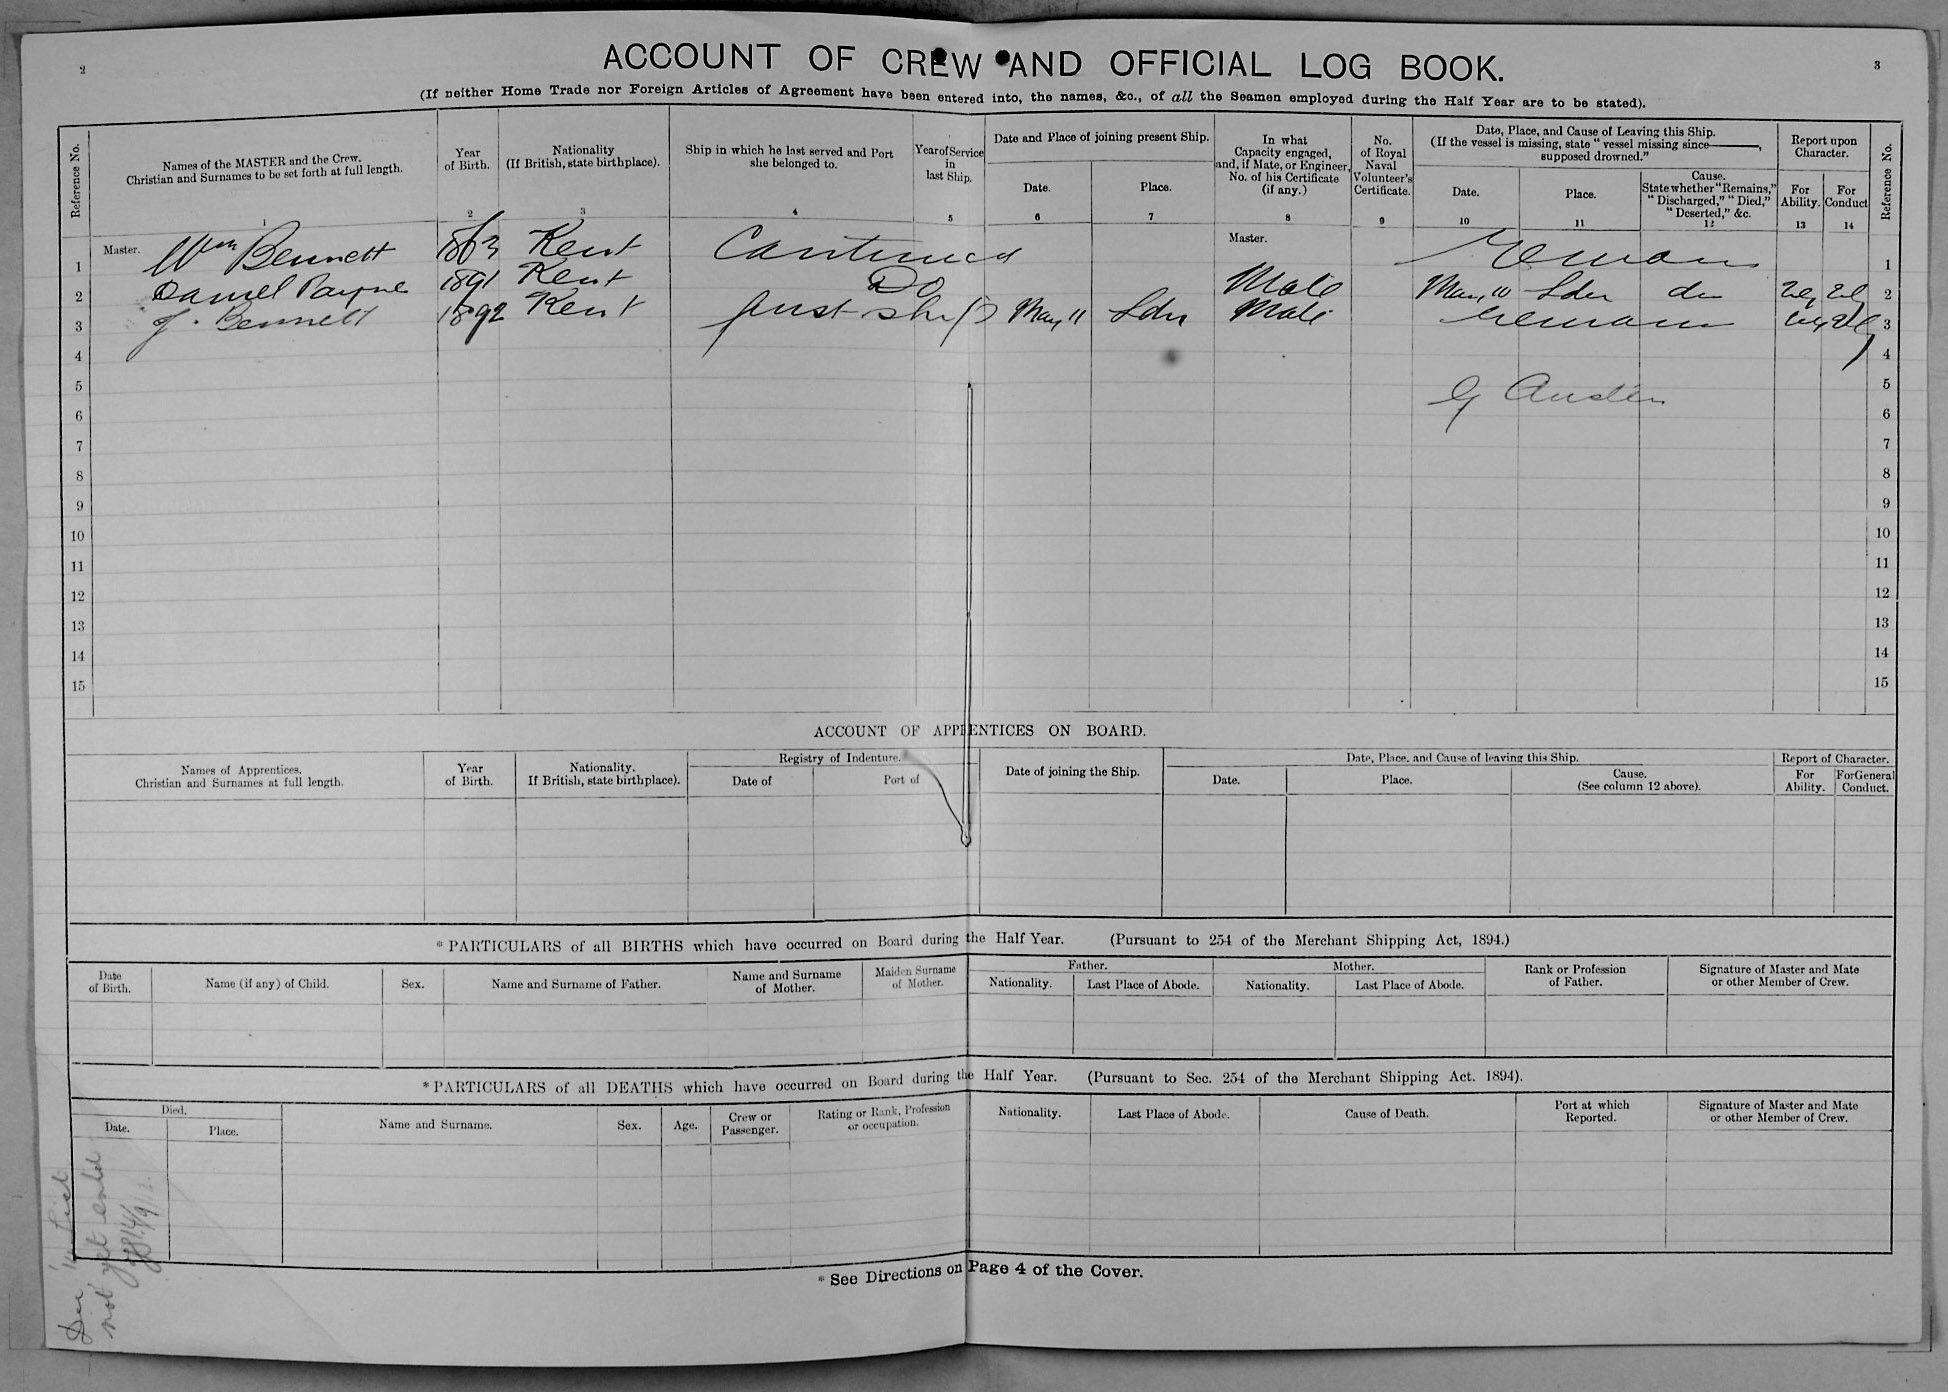 2
ACCOUNT OF CREW AND OFFICIAL LOG BOOK.
3
(If neither Home Trade nor Foreign Articles of Agreement have been entered into, the names, &c., of all the Seamen employed during the Half Year are to be stated).
Reference No.
Names of the MASTER and the Crew.
Christian and Surnames to be set forth at full length.
1
Year
of Birth.
2
Nationality
(If British, state birthplace).
3
Ship in which he last served and Port
she belonged to.
4
Year of Service
in
last Ship.
5
Date and Place of joining present Ship.
Date.
6
Place.
7
In what
Capacity engaged,
and, if Mate, or Engineer,
No. of his Certificate
(if any.)
8
No.
of Royal
Naval
Volunteer's
Certificate.
9
Date, Place, and Cause of Leaving this Ship.
(If the vessel is missing, state "vessel missing since———,
supposed drowned."
Date.
10
Place.
11
Cause.
State whether "Remains,"
"Discharged," "Died,"
"Deserted," &c.
12
Report upon
Character.
For
Ability.
13
For
Conduct
14
Reference No.
1 Master. Wm Bennett 1863 Kent Continued Master. Remains 1
2 Daniel Payne 1891 Kent Do Mate May 10 Ldn dis VG VG 2
3 J. Bennett 1892 Kent first ship May 11 Ldn Mate remains VG VG 3
4 4
5 5
G Austen
6 6
7 7
8 8
9 9
10 10
11 11
12 12
13 13
14 14
15 15
ACCOUNT OF APPRENTICES ON BOARD.
Names of Apprentices.
Christian and Surnames at full length.
Year
of Birth.
Nationality.
If British, state birthplace).
Registry of Indenture.
Date of
Port of
Date of joining the Ship.
Date, Place, and Cause of leaving this Ship.
Date.
Place.
Cause.
(See column 12 above).
Report of Character.
For
Ability.
For General
Conduct.
* PARTICULARS of all BIRTHS which have occurred on Board during the Half Year. (Pursuant to 254 of the Merchant Shipping Act, 1894.)
Date
of Birth.
Name (if any) of Child.
Sex.
Name and Surname of Father.
Name and Surname
of Mother.
Maiden Surname
of Mother.
Father.
Nationality.
Last Place of Abode.
Mother.
Nationality.
Last Place of Abode.
Rank or Profession
of Father.
Signature of Master and Mate
or other Member of Crew.
* PARTICULARS of all DEATHS which have occurred on Board during the Half Year. (Pursuant to Sec. 254 of the Merchant Shipping Act. 1894).
Died.
Date.
Place.
Name and Surname.
Sex.
Age.
Crew or
Passenger.
Rating or Rank, Profession
or occupation.
Nationality.
Last Place of Abode.
Cause of Death.
Port at which
Reported.
Signature of Master and Mate
or other Member of Crew.
* See Directions on Page 4 of the Cover.
Dec '14 List
not yet entd